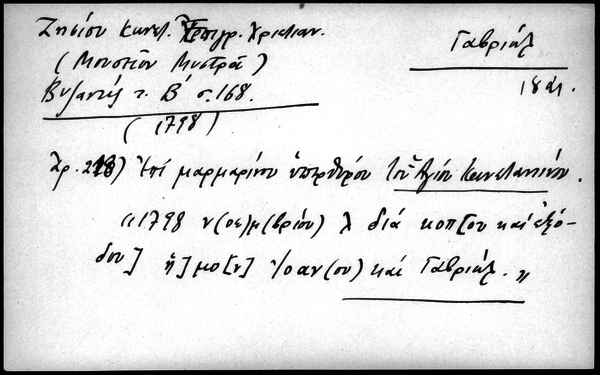 Ζησίου Κωνστ. Ἐπιγρ. Χριστιαν.
(Μουσεῖον Μυστρᾶ)
Βυζαντὶς τ. Β΄ σ. 168.
(1798)
Γαβριὴλ
1841.
Ἀρ. 218) Ἐπὶ μαρμαρίνου ὑπερθύρου τοῦ Ἁγίου Κωνσταντίνου.
"1798 ν(οε)μ(βρίου) λ διά κοπ[ου καὶ ἐξό-
δου] ἤ]μο[ν] Ἰοαν(ου) καὶ Γαβριὴλ."